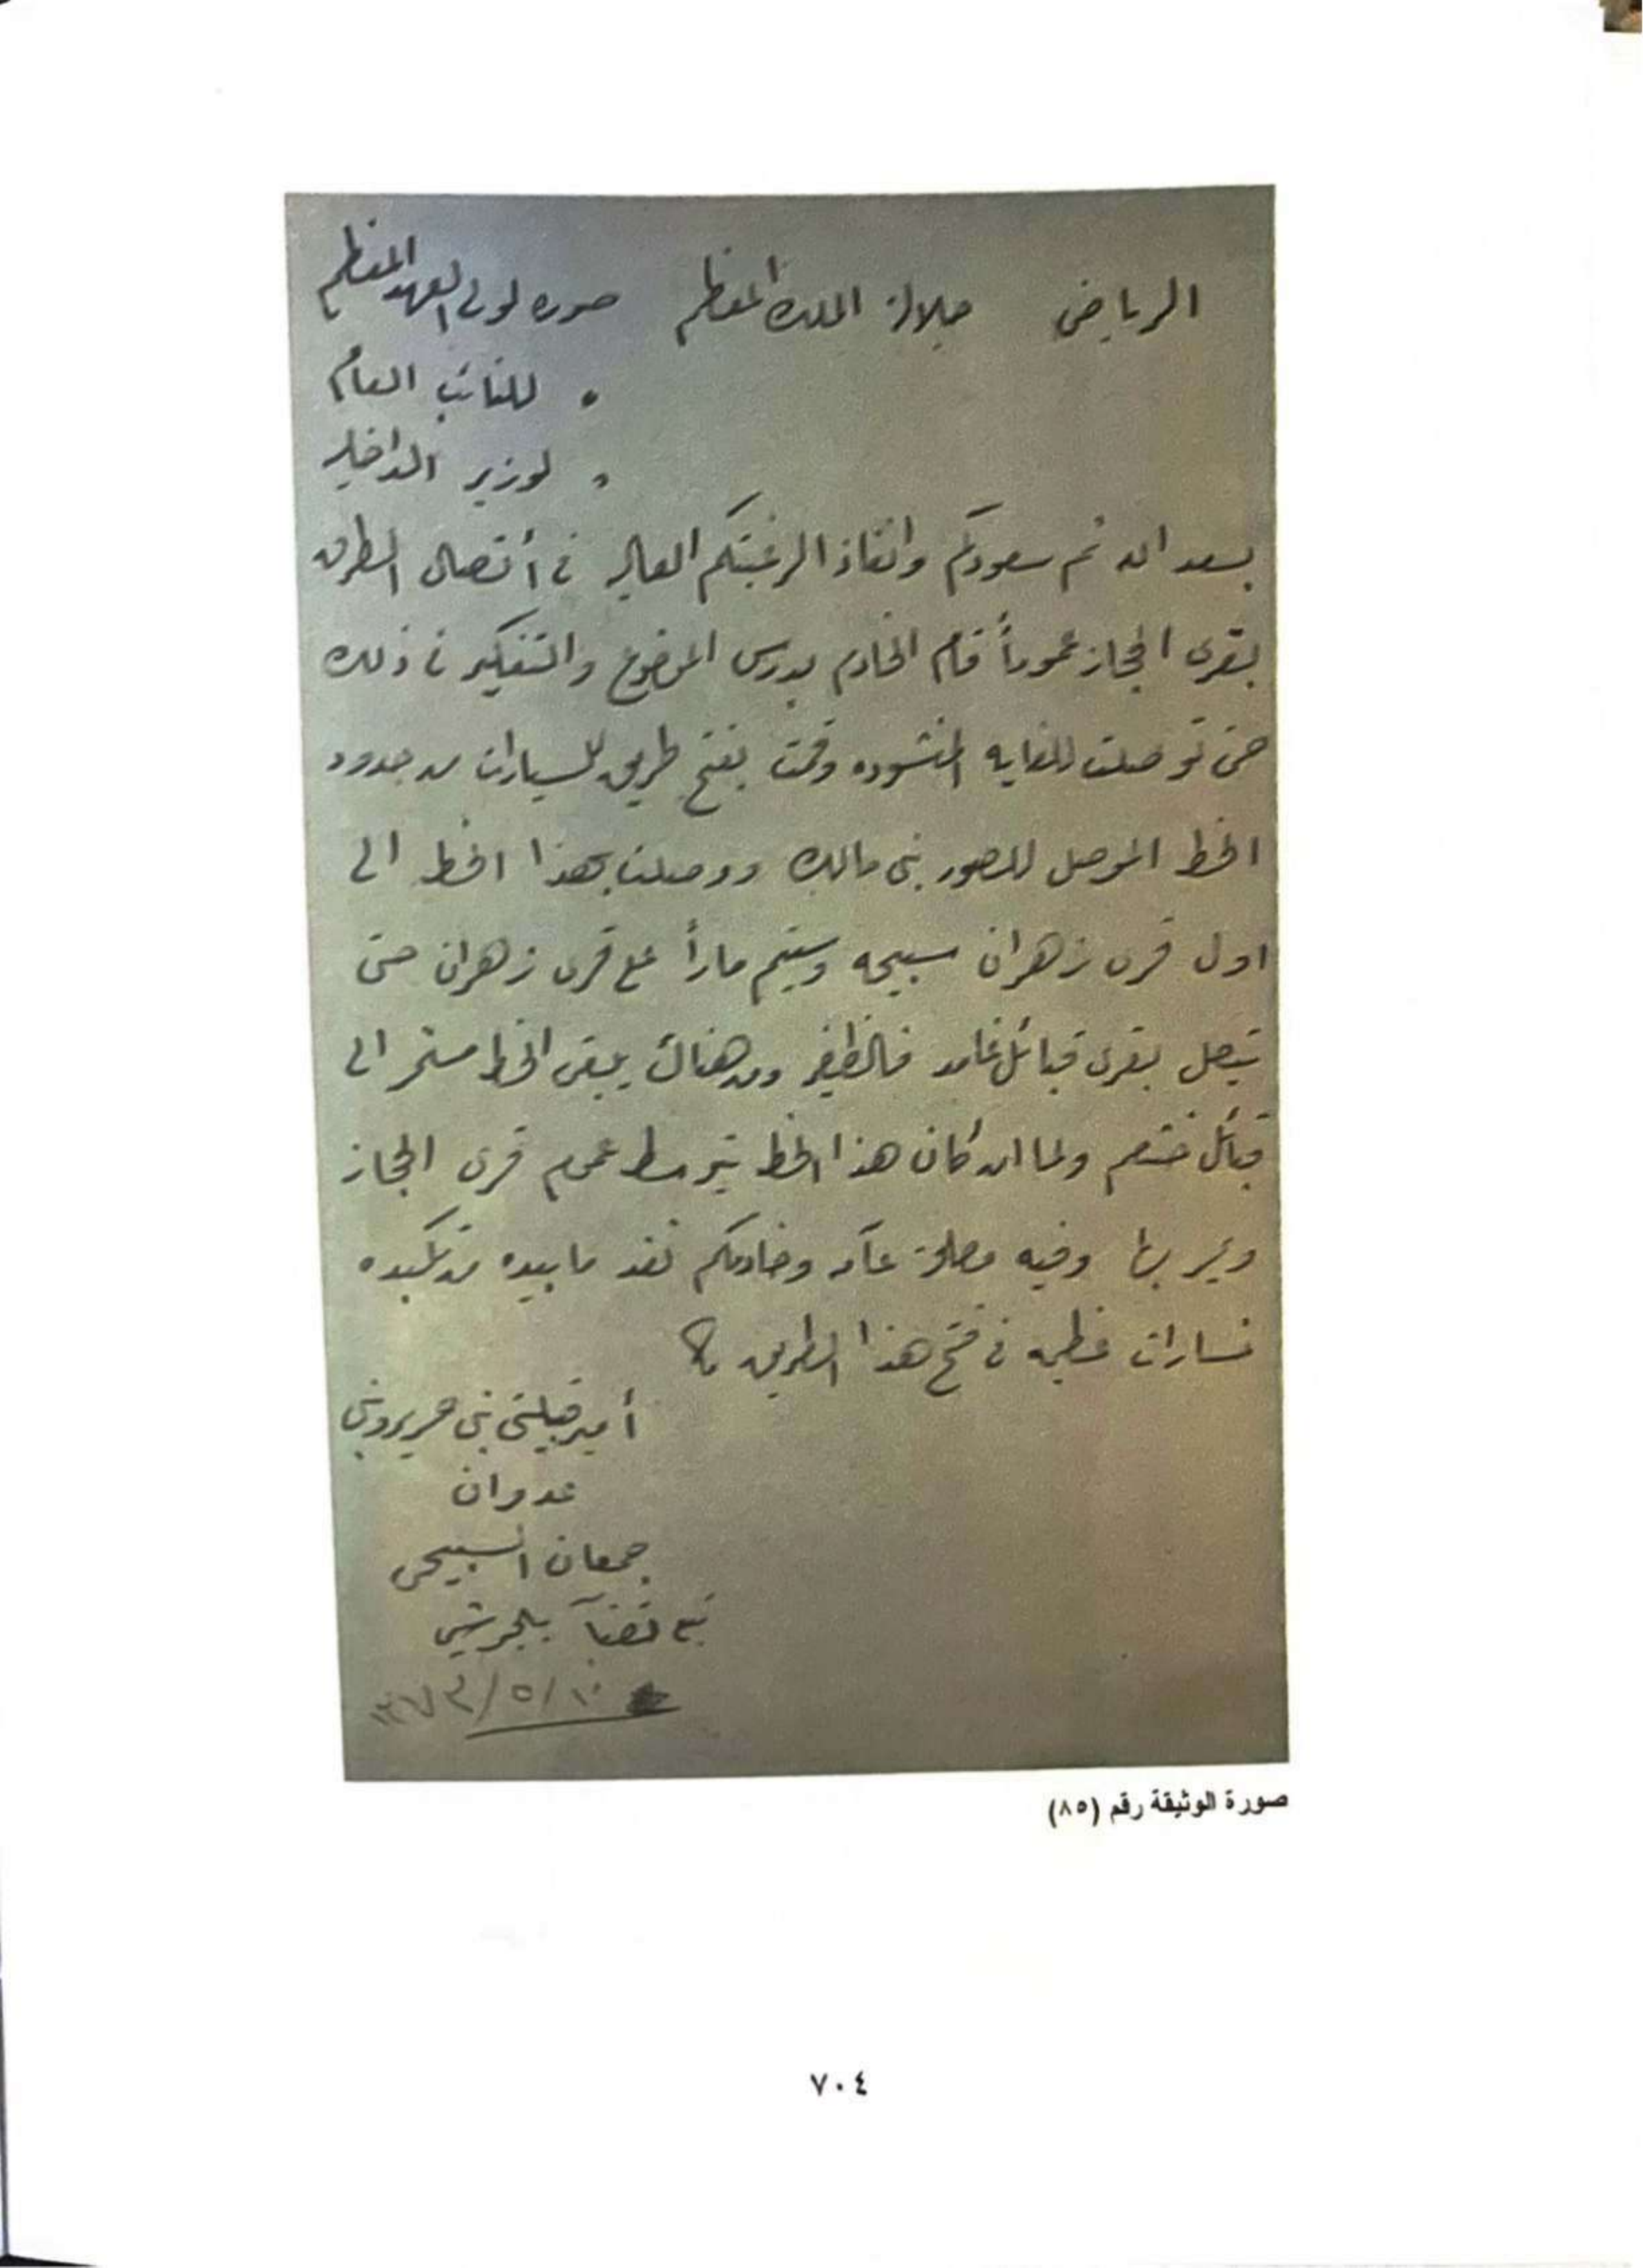 الرياض جلالة الملك المعظم صوره لولي العهد المعظم
" للنائب العام
" لوزير الداخليه
بسعد الله ثم سعودكم وانفاذ الرغبتكم العاليه في أتصال الطرق
بقرى الحجاز عموماً قام الخادم بدرس الموضوع والتفكير في ذلك
حتى توصلت للغايه المنشوده وقمت بفتح طريق للسيارات من حدود
الخط الموصل للصور بني مالك ووصلت بهذا الخط الى
اول قرى زهران سبيحه وسيتم ماراً على قرى زهران حتى
يتصل بقرى قبائل غامد فالظفير ومن هناك يبقى الخط مستمر الى
قبائل خثعم ولما ان كان هذا الخط يتوسط عموم قرى الحجاز
ويمر بها وفيه مصلحة عآمه وخادمكم نفد ما بيده من تكبده
خسارات عظيمه في فتح هذا الطريق
أمير قبيلتي بني حرير وبني
عدوان
جمعان السبيحي
تبع قضآ بلجرشي
١٣٧٣/٥/١٠
صورة الوثيقة رقم (٨٥)
٧٠٤